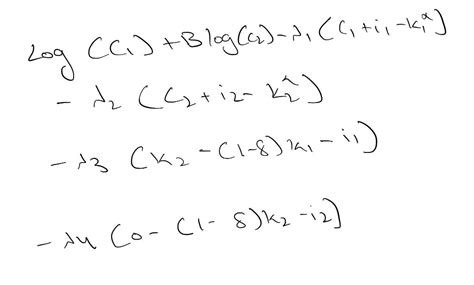 Log (C₁) + B log(C₂) - λ₁ (C₁ + i₁ - k₁^α)
- λ₂ (C₂ + i₂ - k₂^α)
- λ₃ (k₂ - (1-δ)k₁ - i₁)
- λ₄ (0 - (1-δ)k₂ - i₂)